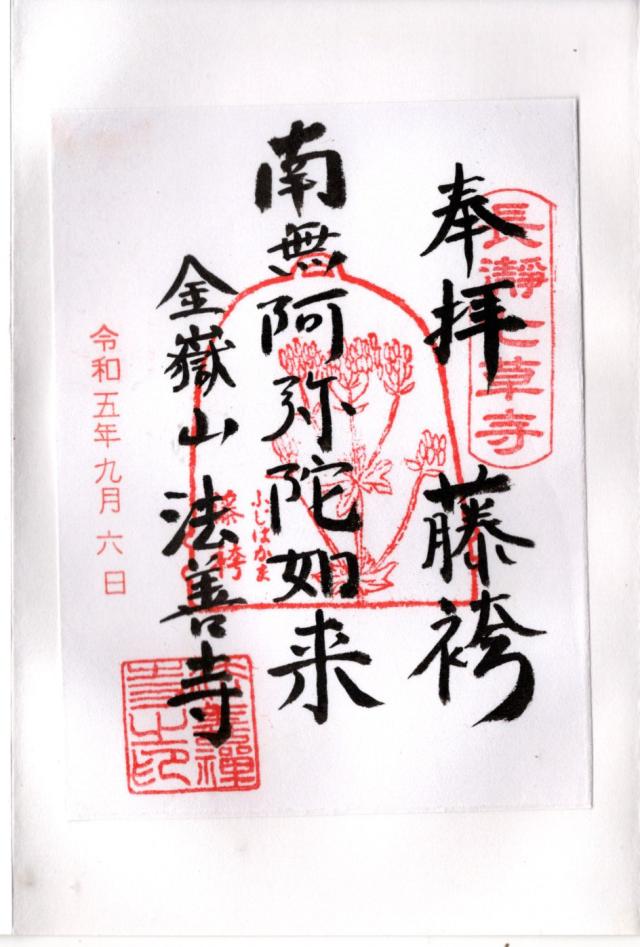 長瀞七草寺
奉拝 藤袴
南無阿弥陀如来
ふじばかま
藤袴
金嶽山 法善寺
令和五年九月六日